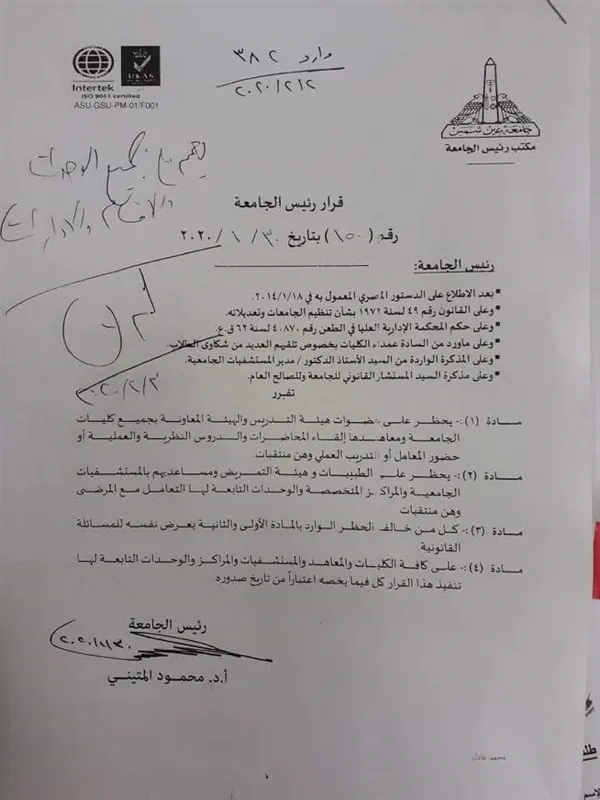 وارد ٣٨٢
٢٠٢٠/٢/٢
Intertek
ISO 9001 certified
UKAS
ASU-GSU-PM-01/F001
جامعة عين شمس
مكتب رئيس الجامعة
يعمم على جميع الوحدات
والأقسام والإدارات
٢٠٢٠/٢/٢
قرار رئيس الجامعة
رقم (١٥٠) بتاريخ ٣٠ / ١ / ٢٠٢٠
رئيس الجامعة:
▪ بعد الاطلاع على الدستور المصري المعمول به في ٢٠١٤/١/١٨.
▪ وعلى القانون رقم ٤٩ لسنة ١٩٧٢ بشأن تنظيم الجامعات وتعديلاته.
▪ وعلى حكم المحكمة الإدارية العليا في الطعن رقم ٤٠٨٧٠ لسنة ٦٢ ق.ع.
▪ وعلى ماورد من السادة عمداء الكليات بخصوص تلقيهم العديد من شكاوى الطلاب.
▪ وعلى المذكرة الواردة من السيد الأستاذ الدكتور / مدير المستشفيات الجامعية.
▪ وعلى مذكرة السيد المستشار القانوني للجامعة وللصالح العام.
تقرر
مادة (١):- يحظر على عضوات هيئة التدريس والهيئة المعاونة بجميع كليات
الجامعة ومعاهدها إلقاء المحاضرات والدروس النظرية والعملية أو
حضور المعامل أو التدريب العملي وهن منتقبات.
مادة (٢):- يحظر على الطبيبات و هيئة التمريض ومساعديهم بالمستشفيات
الجامعية والمراكز المتخصصة والوحدات التابعة لها التعامل مع المرضى
وهن منتقبات
مادة (٣):- كل من خالف الحظر الوارد بالمادة الأولى والثانية يعرض نفسه للمسائلة
القانونية.
مادة (٤):- على كافة الكليات والمعاهد والمستشفيات والمراكز والوحدات التابعة لها
تنفيذ هذا القرار كل فيما يخصه اعتباراً من تاريخ صدوره.
رئيس الجامعة
٢٠٢٠/١/٣٠
أ.د. محمود المتيني
محمد عادل